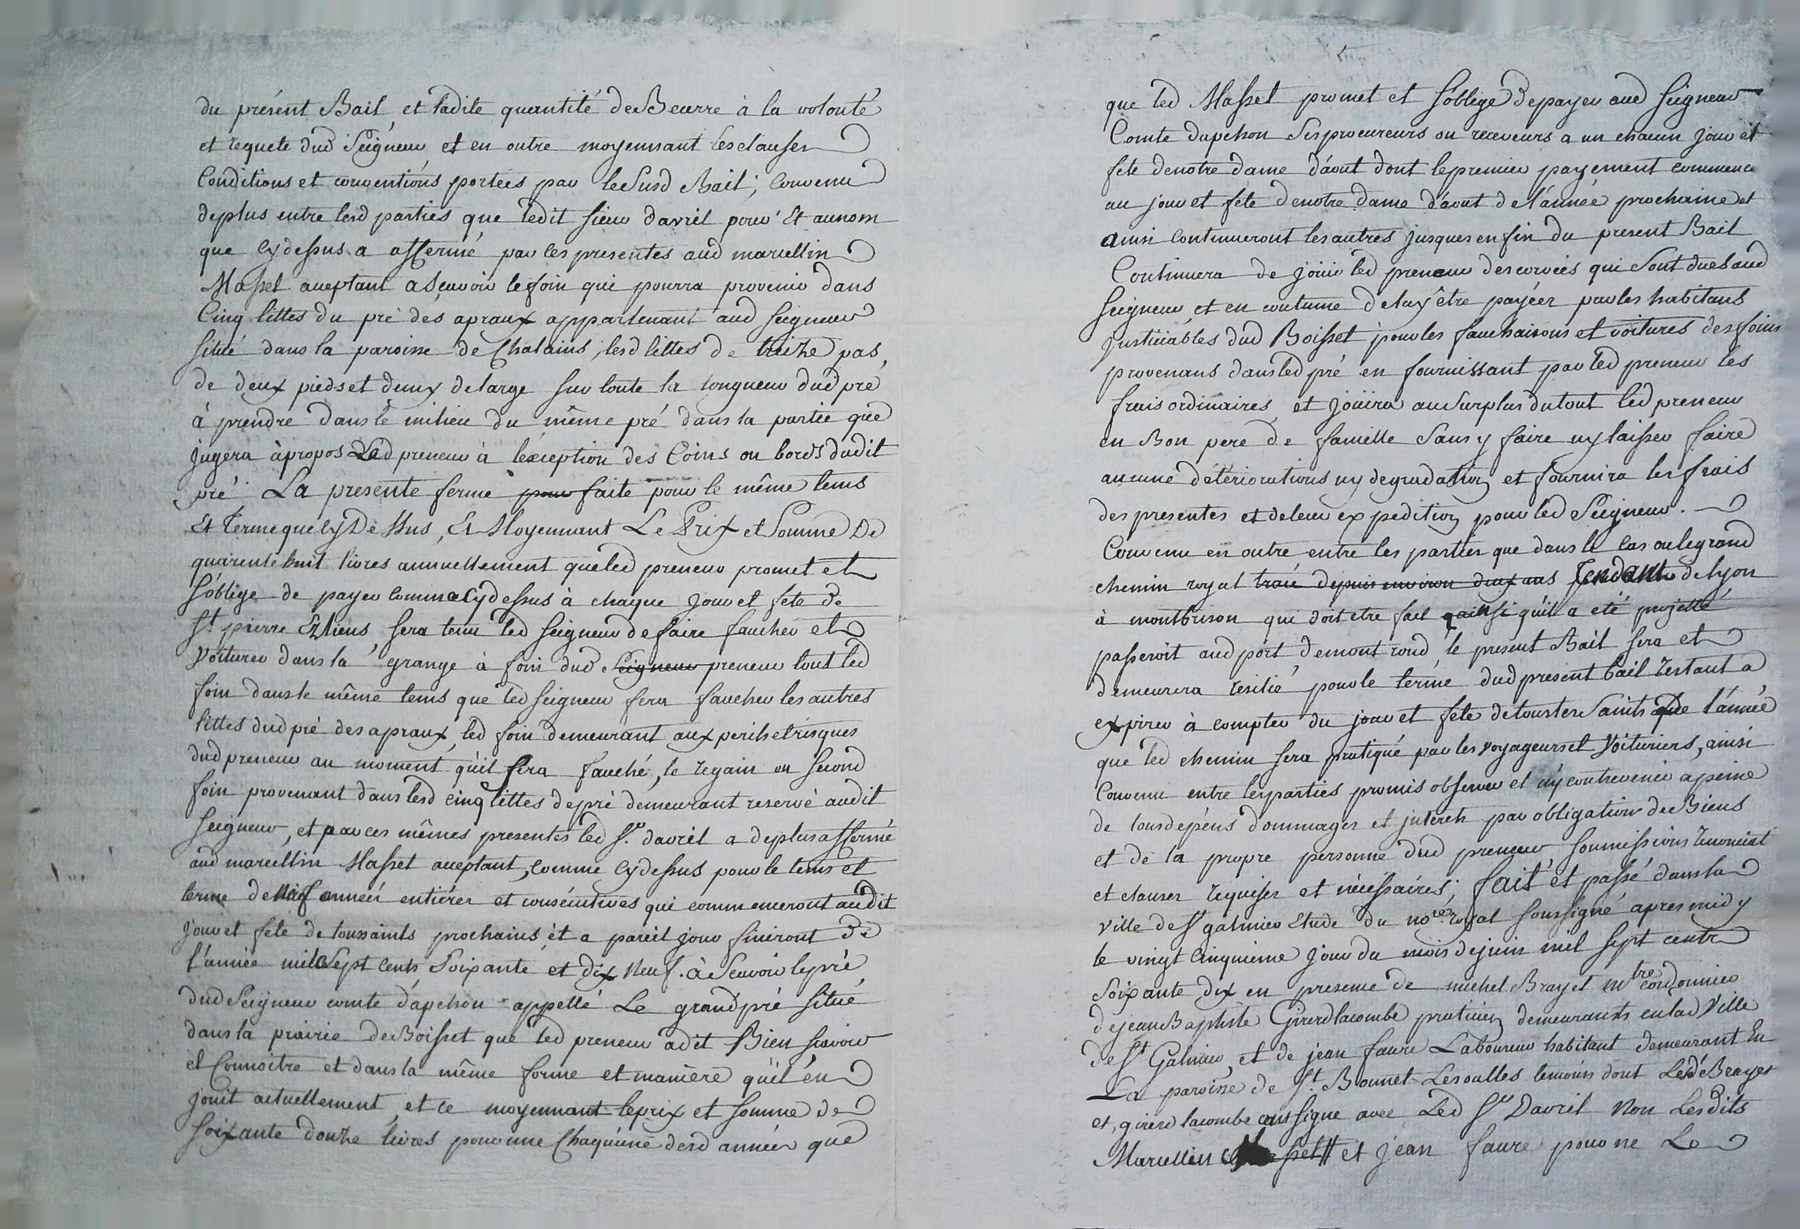 du présent Bail, et ladite quantité de Beurre à la volonté
et requete dud Seigneur et en outre moyennant les clauses
Conditions et conventions portées par le susd Bail; convenu
deplus entre lesd parties que ledit sieur davril pour et aunom
que cydessus a affermé par ces presentes aud marcellin
Masset aceptant ascavoir le foin qui pourra provenir dans
Cinq littes du pré des apraux appartenant aud seigneur
situé dans la paroisse de Chalains, lesd littes de treize pas
de deux pieds et demy de large sur toute la longueur dud pré
à prendre dans le milieu du même pré dans la partie que
jugera àpropos led preneur à léxception des Coins ou bords dudit
pré. La presente ferme pour faite pour le même tems
Et Terme que cy Dessus, Et Moyennant Le Prix et Somme De
quarente huit livres annuellement que led preneur promet et
s'oblige de payer comme cydessus à chaque jour et fete de
St. pierre Et liens sera tenu led seigneur de faire faucher et
Voiturer dans la grange à foin dud Seigneur preneur tout led
foin dans le même tems que led seigneur fera faucher les autres
littes dud pré des apraux, led foin demeurant aux perils et risques
dud preneur au moment qu'il sera fauché, le regain ou second
foin provenant dans lesd cinq littes depré demeurant reservé audit
seigneur, et par ces mêmes presentes led Sr. davril a deplus affermé
aud marcellin Masset aceptant, comme cydessus pour le tems et
terme de neuf années entiéres et consécutives qui commenceront audit
jour et féte de toussaints prochains et a pareil jour finiront de
l'année mil Sept Cents Soixante et dix Neuf. à Scavoir le pré
dud Seigneur comte d'apchon appellé Le grand pré situé
dans la prairie de Boisset que led preneur a dit Bien scavoir
et Connoitre et dans la même forme et maniere qu'il en
jouit actuellement, et ce moyennant le prix et somme de
soixante douze livres pour une chaquune desd années que
que led Masset promet et s'oblige de payer aud seigneur
Comte dapchon ses procureurs ou receveurs a un chacun jour et
fete de notre dame d'aout dont le premier payement commence
au jour et féte de notre dame d'aout de l'année prochaine et
ainsi continueront les autres jusques en fin du present Bail
Continuera de joüir led preneur des corvées qui sont dues aud
seigneur et en coutume de luy être payées par les habitans
justiciables dud Boisset pour les fauchaisons et voitures des foins
provenans dans led pré en fournissant par led preneur les
frais ordinaires, et joüira au surplus du tout led preneur
en Bon pere de famille sans y faire ny laisser faire
aucune détériorations ny degradation et fournira les frais
des presentes et de leur expedition pour led Seigneur.
Convenu en outre entre les parties que dans le cas ou le grand
chemin royal tracé depuis environ deux ans Tendant de lyon
à montbrison qui doit etre fait ainsi qu'il a eté projetté
passeroit aud port de mont rond, le present Bail sera et
demeurera resilié pour le terme dud present bail restant a
expirer à compter du jour et féte de toustes Saints que l'année
que led chemin sera pratiqué par les voyageurs et Voituriers, ainsi
Convenu entre les parties promis observer et n'y contrevenir a peine
de tous depens dommages et interets par obligation de Biens
et de la propre personne dud preneur soumissions renonciat
et clauses requises et nécessaires; fait et passé dans la
ville de St galmier Etude du nore. royal soussigné apres midy
le vingt cinquieme jour du mois de juin mil sept cents
soixante dix en presence de michel Brayet mtre cordonnier
de jean Baptiste Girerd lacombe praticien demeurants en lad Ville
de St Galmier, et de jean faure Laboureur habitant demeurant En
La paroisse de St. Bonnet Les oulles temoins dont Led Brayet
et girerd lacombe ont signe avec Led Sr Davril Non Lesdits
Marcellin Masset et jean faure pour ne Le